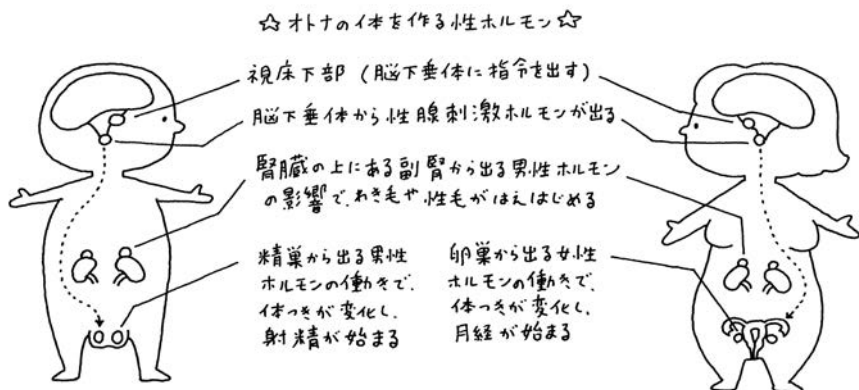 ☆オトナの体を作る性ホルモン☆
視床下部(脳下垂体に指令を出す)
脳下垂体から性腺刺激ホルモンが出る
腎臓の上にある副腎から出る男性ホルモン
の影響で、わき毛や性毛がはえはじめる
精巣から出る男性
ホルモンの働きで、
体つきが変化し、
射精が始まる
卵巣から出る女性
ホルモンの働きで、
体つきが変化し、
月経が始まる